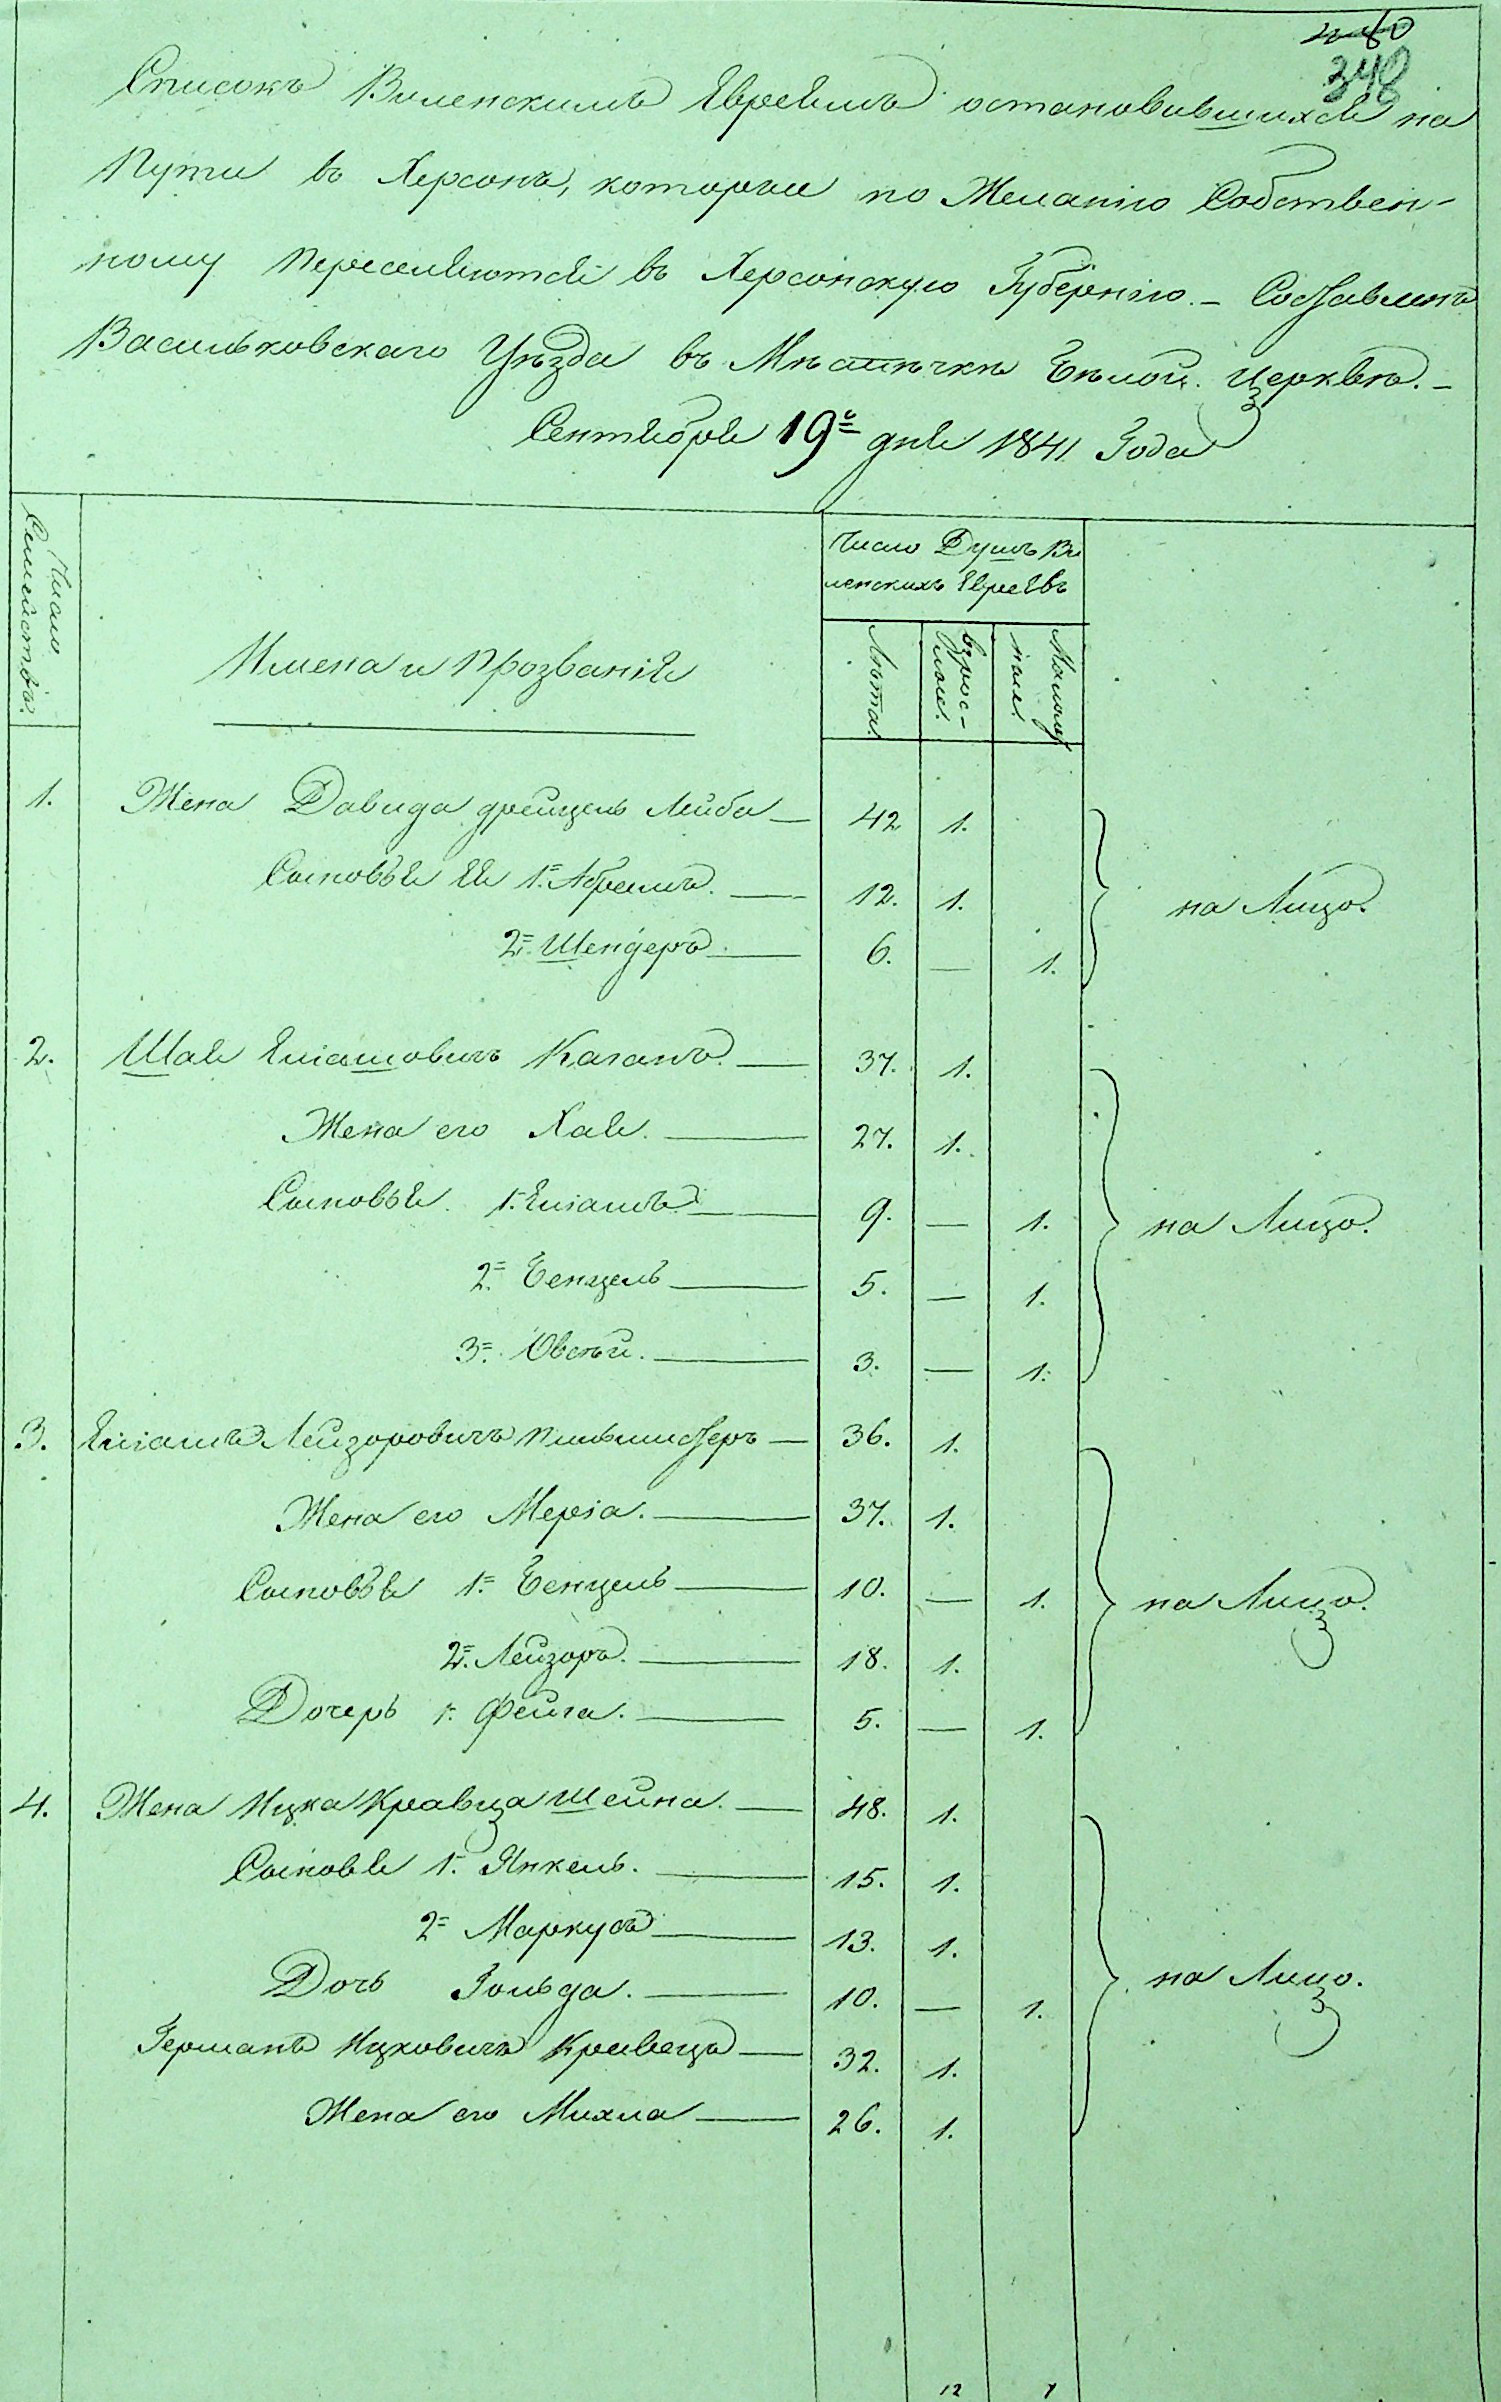 348
Списокъ Виленскимъ Евреямъ остановившихся на
Пути въ Херсонъ, которые по Желанію Собствен-
ному переселяются въ Херсонскую Губернію. – Составленъ
Васильковскаго Уѣзда въ Мѣстѣчкѣ Бѣлой Церквѣ. –
Сентября 19го дня 1841 Года
Число Семействъ.
Имена и Прозванія
Число Душъ Ви
ленскихъ Евреевъ
Лѣта.
взрос-
лые.
Малолѣт
ные.
1. Жена Давида Лейба — 42 1.
Сыновья Ея 1. Абрамъ. — 12. 1. на Лицо.
2. Шендеръ — 6. — 1.
2. Шая Еліашовичъ Каганъ. — 37. 1.
Жена его Хая. — 27. 1.
Сыновья 1. Еліашъ — 9. — 1. на Лицо.
2. Бенцель — 5. — 1.
3. Овсѣй. — 3. — 1.
3. Еліашъ Лейзоровичъ — 36. 1.
Жена его Меріа. — 37. 1.
Сыновья 1. Бенцель — 10. — 1. на Лицо.
2. Лейзоръ. — 18. 1.
Дочерь 1. Фейга. — 5. — 1.
4. Жена Ицка Кравца Шейна. — 48. 1.
Сыновья 1. Янкель. — 15. 1.
2 Маркусъ — 13. 1.
Дочь Гольда. — 10. — 1. на Лицо.
Германъ Ицковичъ Кравецъ — 32. 1.
Жена его Михла — 26. 1.
12 7